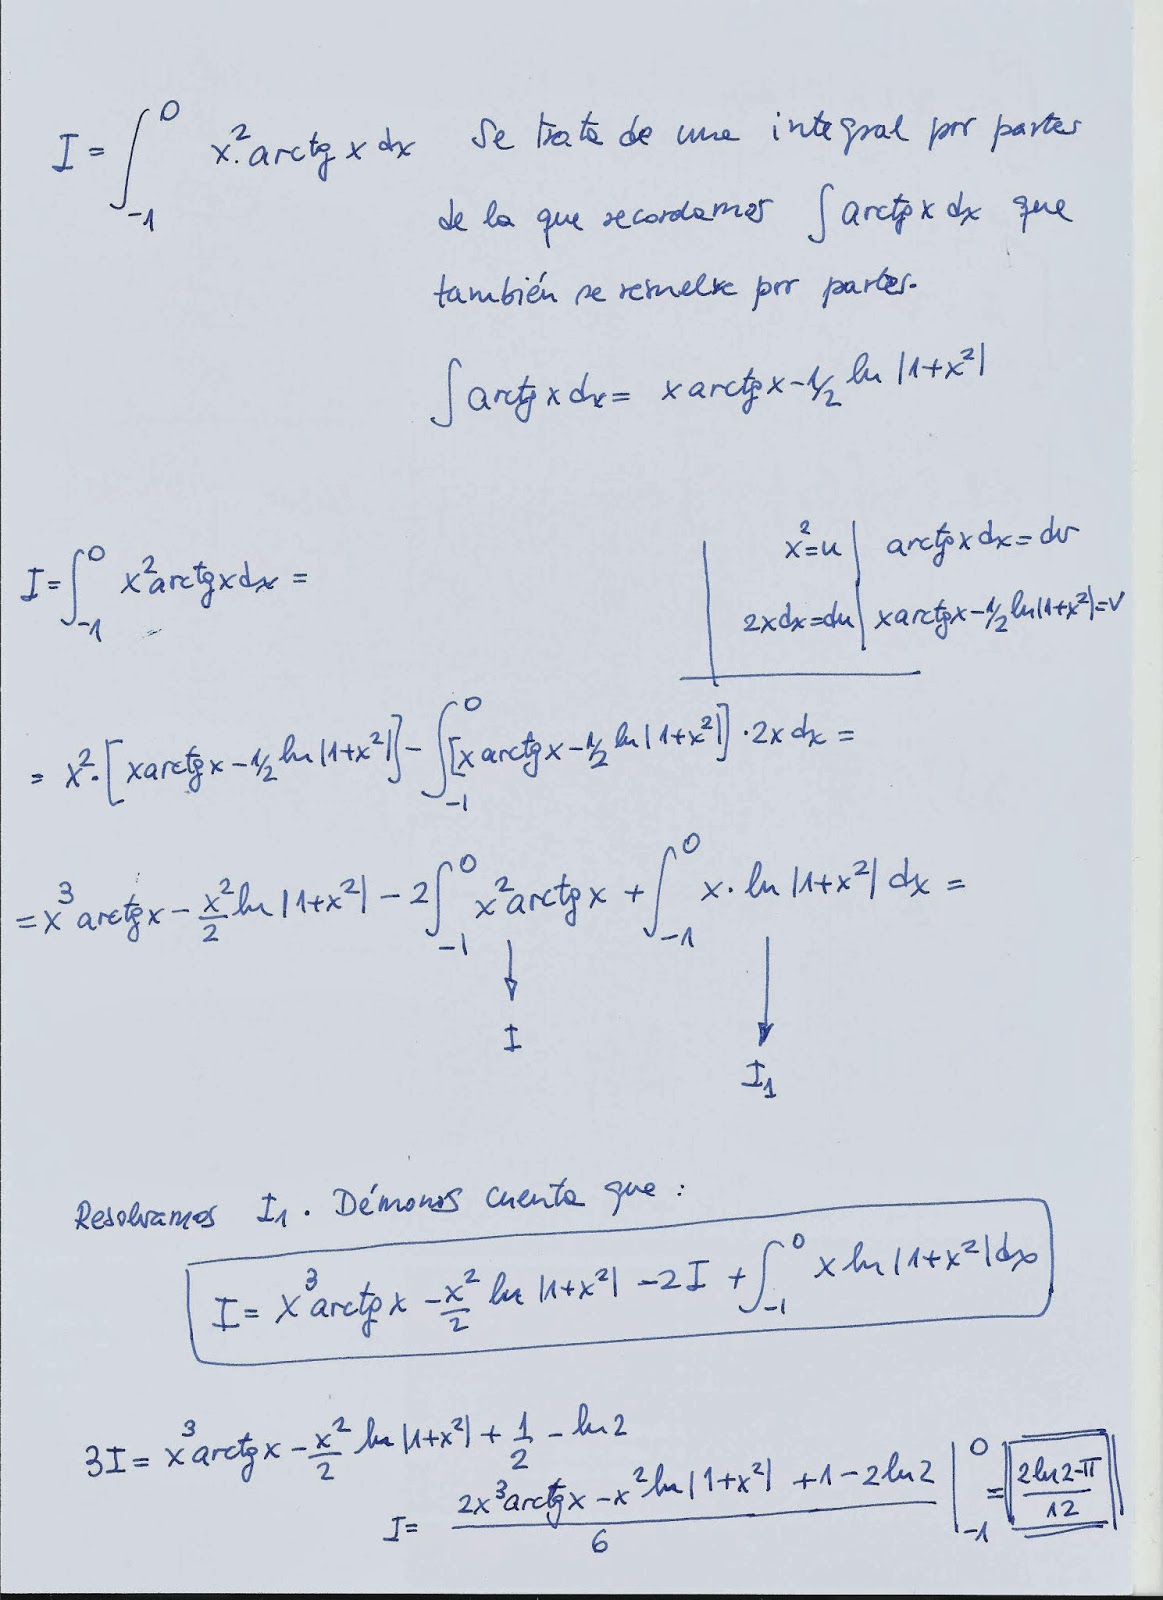 I = ∫₋₁⁰ x².arctg x dx Se trata de una integral por partes
de la que recordamos ∫ arctg x dx que
también se resuelve por partes.
∫ arctg x dx = x arctg x - 1/2 ln |1+x²|
x² = u | arctg x dx = dv
I = ∫₋₁⁰ x² arctg x dx =
2x dx = du | x arctg x - 1/2 ln |1+x²| = v
= x². [x arctg x - 1/2 ln |1+x²|] - ∫₋₁⁰ [x arctg x - 1/2 ln |1+x²|] · 2x dx =
= x³ arctg x - x²/2 ln |1+x²| - 2 ∫₋₁⁰ x² arctg x + ∫₋₁⁰ x · ln |1+x²| dx =
I
I₁
Resolvamos I₁. Démonos cuenta que:
I = x³ arctg x - x²/2 ln |1+x²| - 2I + ∫₋₁⁰ x ln |1+x²| dx
3I = x³ arctg x - x²/2 ln |1+x²| + 1/2 - ln 2
I = (2x³ arctg x - x² ln |1+x²| + 1 - 2 ln 2)/6 |₋₁⁰ = (2 ln 2 - π)/12